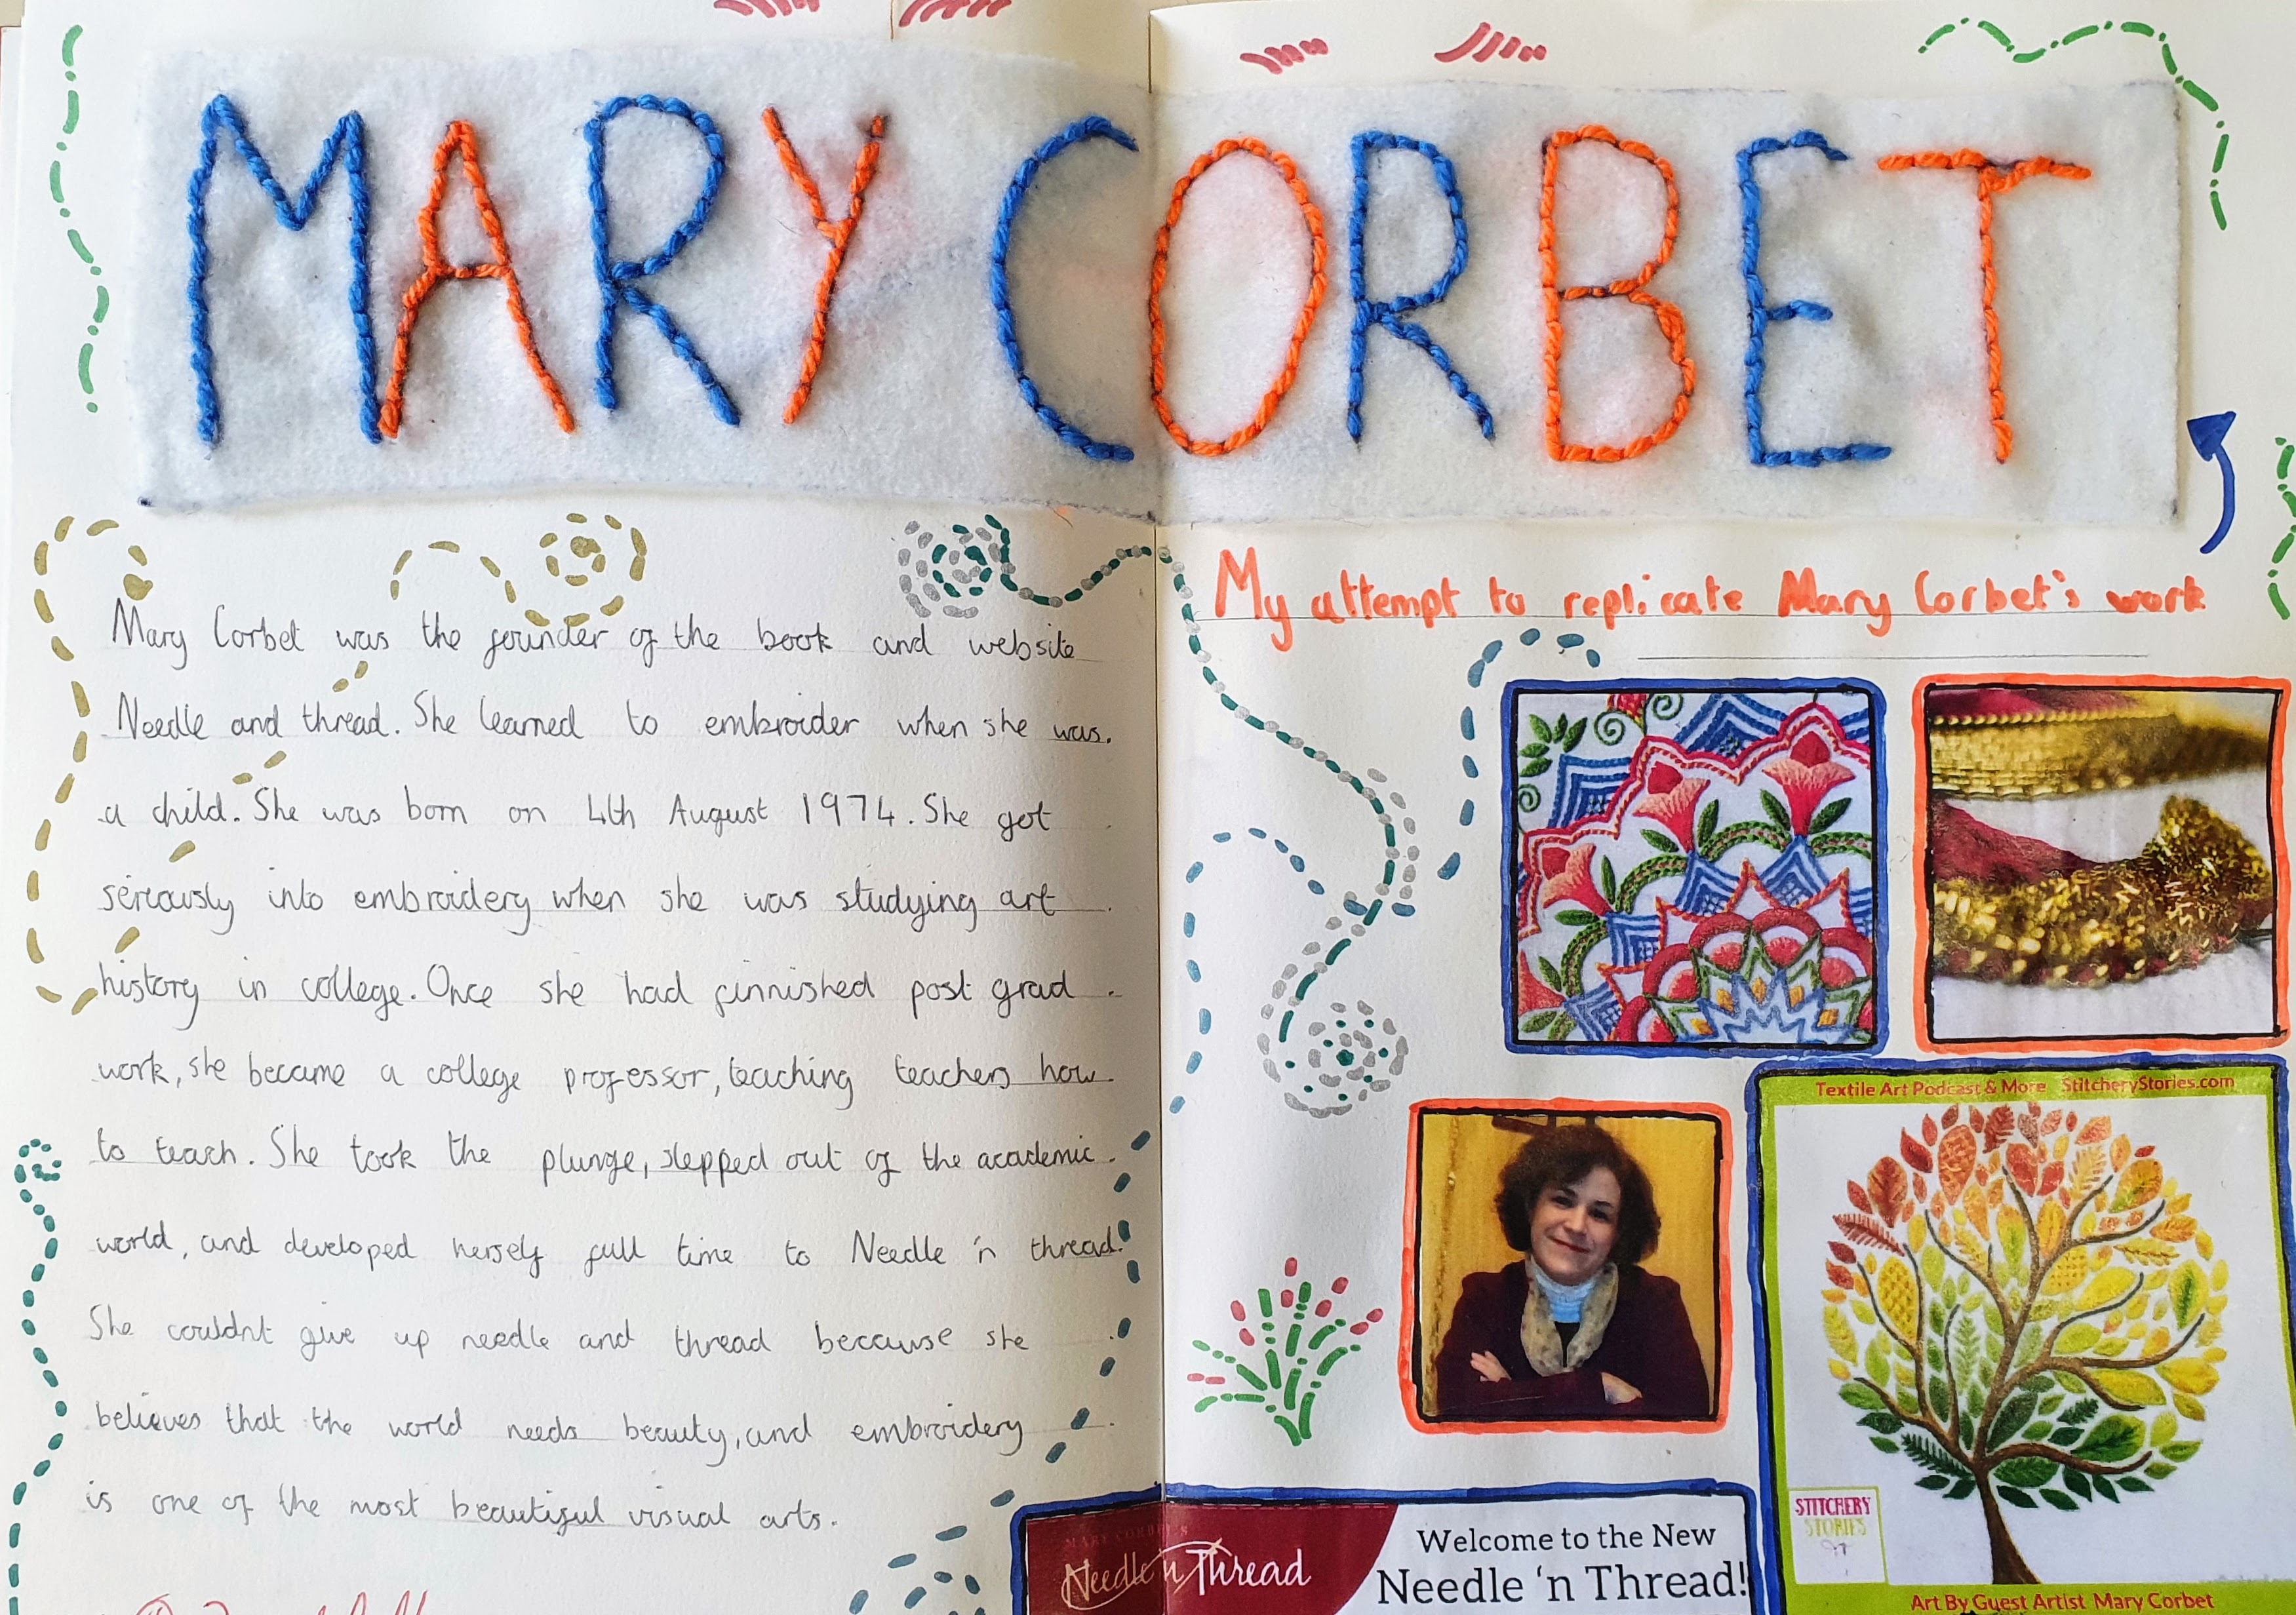 MARY CORBET
Mary Corbet was the founder of the book and website
Needle and thread. She learned to embroider when she was
a child. She was born on 4th August 1974. She got
seriously into embroidery when she was studying art
history in college. Once she had finnished post grad
work, she became a college professor, teaching teachers how
to teach. She took the plunge, stepped out of the academic
world, and developed herself full time to Needle 'n thread.
She couldnt give up needle and thread because she
believes that the world needs beauty, and embroidery
is one of the most beautiful visual arts.
My attempt to replicate Mary Corbet's work
Textile Art Podcast & More StitcheryStories.com
STITCHERY
STORIES
Art By Guest Artist Mary Corbet
MARY CORBET'S
Needle 'n Thread
Welcome to the New
Needle 'n Thread!